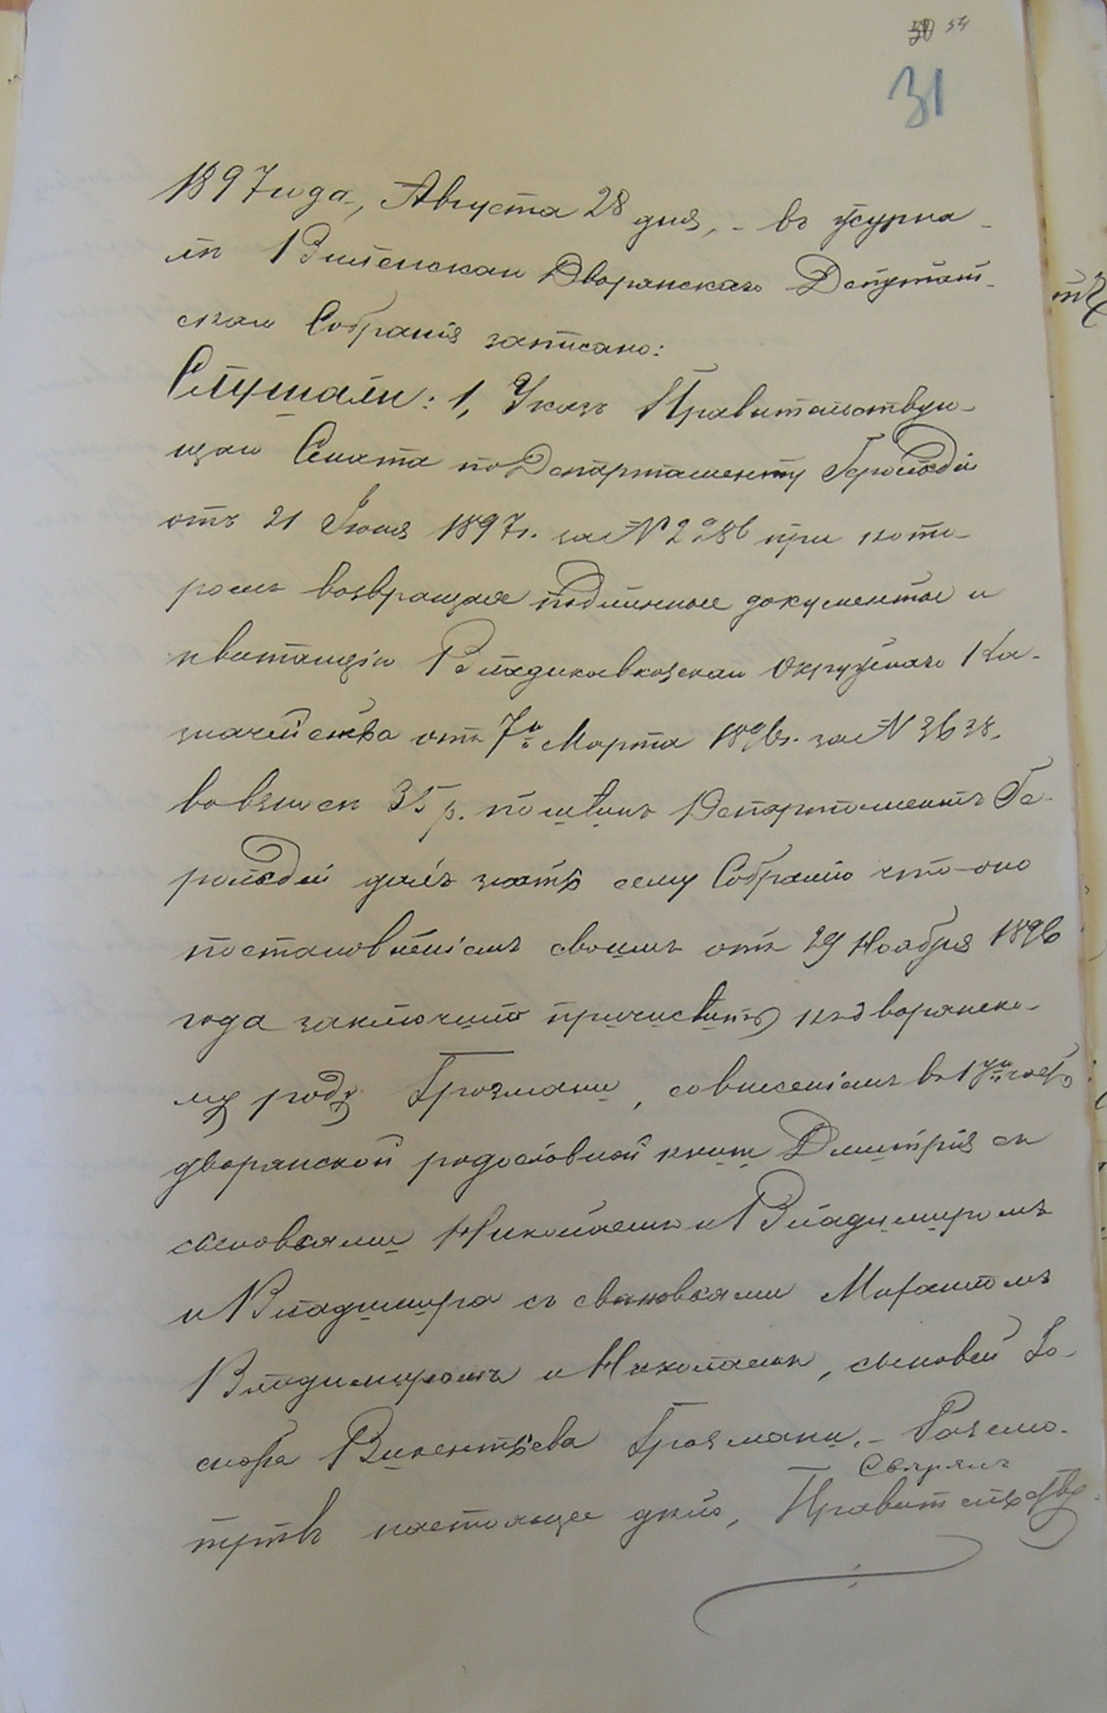 30 54
31
1897 года, Августа 28 дня, - въ журна-
лѣ Виленскаго Дворянскаго Депутат-
скаго Собранія записано:
Слушали: 1, Указъ Правительствую-
щаго Сената по Департаменту Герольдіи
отъ 21 Іюня 1897 г. за № 2286 при кото-
ромъ возвращая подлинные документы и
квитанцію Владикавказскаго Окружнаго Ка-
значейства отъ 7го Марта 1896 г. за № 3638.
во взносѣ 35 р. пошлинъ Департаментъ Ге-
рольдіи далъ знать сему Собранію что-оно
постановленіемъ своимъ отъ 29 Ноября 1896
года заключило причислить къ дворянско-
му роду Грозмани, со внесеніемъ въ 1ую часть
дворянской родословной книги Дмитрія съ
сыновьями Николаемъ и Владимиромъ
и Владимира съ сыновьями Михаиломъ
Владимиромъ и Николаемъ, сыновей Іо-
сифа Викентьева Грозмани. - Разсмо-
Свѣрялъ
трѣвъ настоящее дѣло, Правительству-